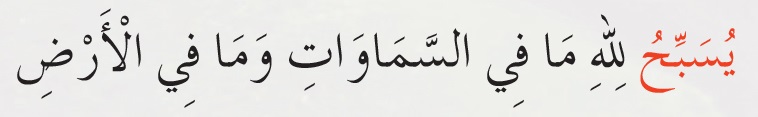 يُسَبِّحُ لِلَّهِ مَا فِي السَّمَاوَاتِ وَمَا فِي الْأَرْضِ